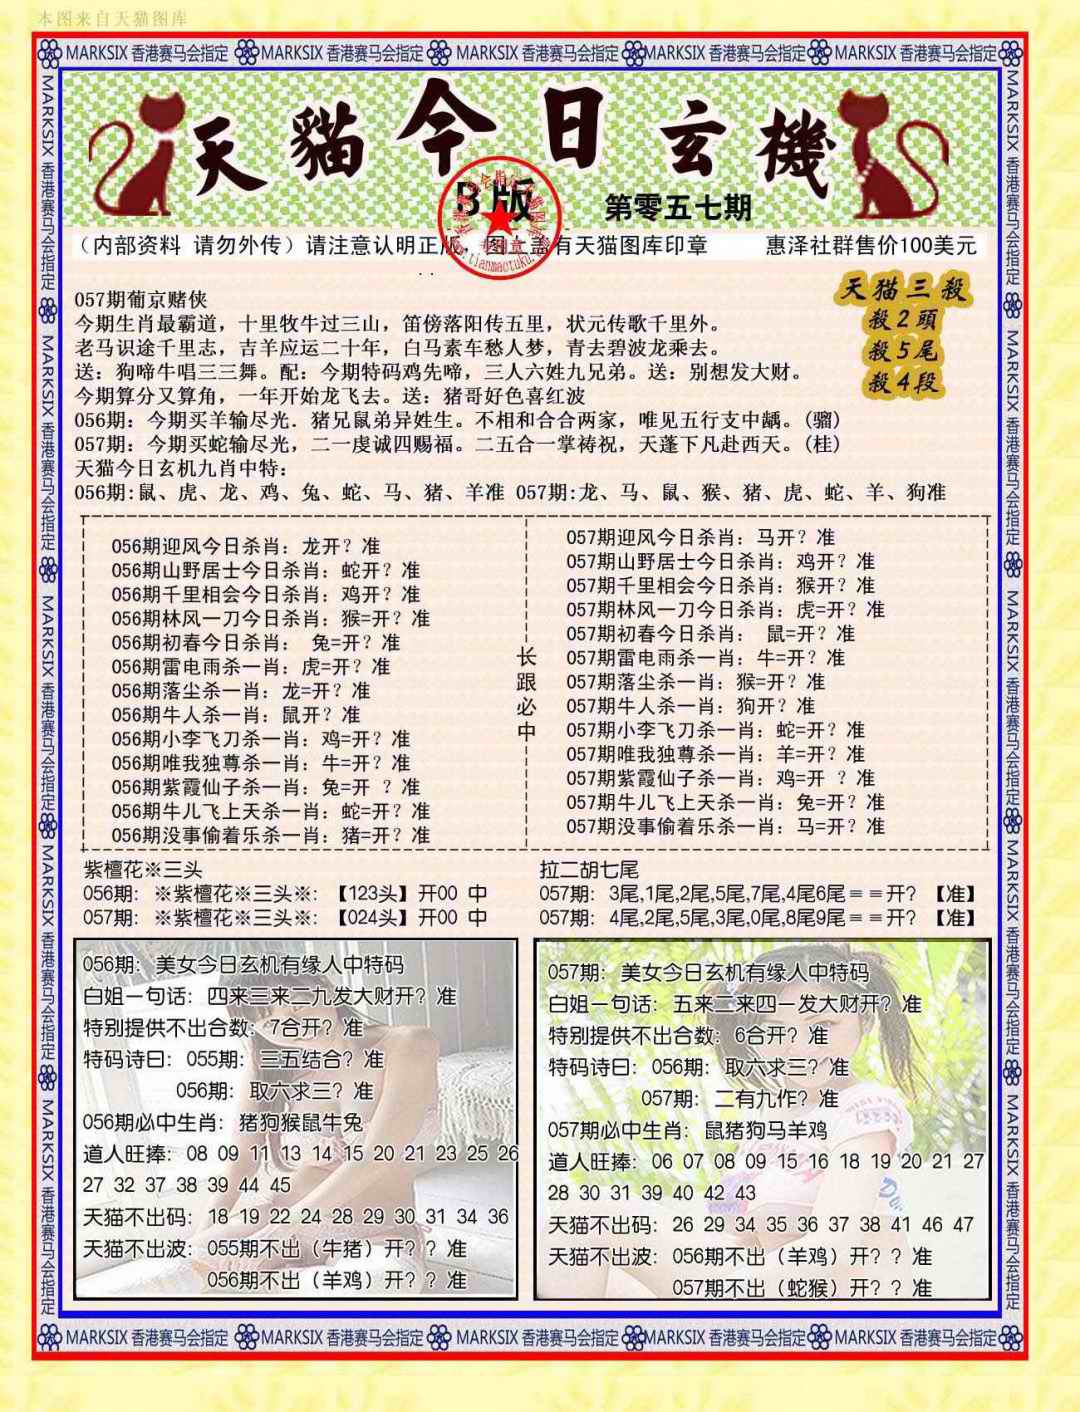 本图来自天猫图库
MARKSIX 香港赛马会指定 MARKSIX 香港赛马会指定 MARKSIX 香港赛马会指定 MARKSIX 香港赛马会指定 MARKSIX 香港赛马会指定
天貓今日玄機
B版
第零五七期
（内部资料 请勿外传）请注意认明正版，图上盖有天猫图库印章 惠泽社群售价100美元
天猫三殺
殺2頭
殺5尾
殺4段
057期葡京赌侠
今期生肖最霸道，十里牧牛过三山，笛傍落阳传五里，状元传歌千里外。
老马识途千里志，吉羊应运二十年，白马素车愁人梦，青去碧波龙乘去。
送：狗啼牛唱三三舞。配：今期特码鸡先啼，三人六姓九兄弟。送：别想发大财。
今期算分又算角，一年开始龙飞去。送：猪哥好色喜红波
056期：今期买羊输尽光．猪兄鼠弟异姓生。不相和合合两家，唯见五行支中龋。(骝)
057期：今期买蛇输尽光，二一虔诚四赐福。二五合一掌祷祝，天蓬下凡赴西天。(桂)
天猫今日玄机九肖中特：
056期:鼠、虎、龙、鸡、兔、蛇、马、猪、羊准 057期:龙、马、鼠、猴、猪、虎、蛇、羊、狗准
056期迎风今日杀肖：龙开？准
056期山野居士今日杀肖：蛇开？准
056期千里相会今日杀肖：鸡开？准
056期林风一刀今日杀肖：猴=开？准
056期初春今日杀肖： 兔=开？准
056期雷电雨杀一肖：虎=开？准
056期落尘杀一肖：龙=开？准
056期牛人杀一肖：鼠开？准
056期小李飞刀杀一肖：鸡=开？准
056期唯我独尊杀一肖：牛=开？准
056期紫霞仙子杀一肖：兔=开 ？准
056期牛儿飞上天杀一肖：蛇=开？准
056期没事偷着乐杀一肖：猪=开？准
长跟必中
057期迎风今日杀肖：马开？准
057期山野居士今日杀肖：鸡开？准
057期千里相会今日杀肖：猴开？准
057期林风一刀今日杀肖：虎=开？准
057期初春今日杀肖： 鼠=开？准
057期雷电雨杀一肖：牛=开？准
057期落尘杀一肖：猴=开？准
057期牛人杀一肖：狗开？准
057期小李飞刀杀一肖：蛇=开？准
057期唯我独尊杀一肖：羊=开？准
057期紫霞仙子杀一肖：鸡=开 ？准
057期牛儿飞上天杀一肖：兔=开？准
057期没事偷着乐杀一肖：马=开？准
紫檀花※三头
056期：※紫檀花※三头※：【123头】开00 中
057期：※紫檀花※三头※：【024头】开00 中
拉二胡七尾
057期：3尾,1尾,2尾,5尾,7尾,4尾6尾＝＝开？【准】
057期：4尾,2尾,5尾,3尾,0尾,8尾9尾＝＝开？【准】
056期：美女今日玄机有缘人中特码
白姐一句话：四来三来二九发大财开？准
特别提供不出合数：7合开？准
特码诗曰：055期：三五结合？准
056期：取六求三？准
056期必中生肖：猪狗猴鼠牛兔
道人旺捧：08 09 11 13 14 15 20 21 23 25 26
27 32 37 38 39 44 45
天猫不出码：18 19 22 24 28 29 30 31 34 36
天猫不出波：055期不出（牛猪）开？？准
056期不出（羊鸡）开？？准
057期：美女今日玄机有缘人中特码
白姐一句话：五来二来四一发大财开？准
特别提供不出合数：6合开？准
特码诗曰：056期：取六求三？准
057期：二有九作？准
057期必中生肖：鼠猪狗马羊鸡
道人旺捧：06 07 08 09 15 16 18 19 20 21 27
28 30 31 39 40 42 43
天猫不出码：26 29 34 35 36 37 38 41 46 47
天猫不出波：056期不出（羊鸡）开？？准
057期不出（蛇猴）开？？准
MARKSIX 香港赛马会指定 MARKSIX 香港赛马会指定 MARKSIX 香港赛马会指定 MARKSIX 香港赛马会指定 MARKSIX 香港赛马会指定
MARKSIX 香港赛马会指定 MARKSIX 香港赛马会指定 MARKSIX 香港赛马会指定 MARKSIX 香港赛马会指定 MARKSIX 香港赛马会指定
MARKSIX 香港赛马会指定 MARKSIX 香港赛马会指定 MARKSIX 香港赛马会指定 MARKSIX 香港赛马会指定 MARKSIX 香港赛马会指定